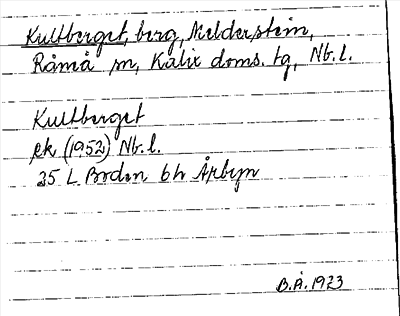 Kultberget, berg, Melderstein,
Råneå sn, Kalix doms. tg, Nb.l.
Kultberget
ek (1952) Nb.l.
25 L Boden 6h Åkbyn
B.Å. 1973